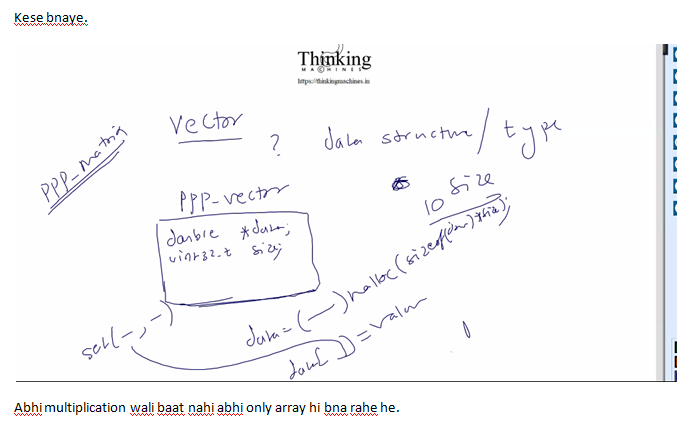 Kese bnaye.
Thinking
MACHINES
https://thinkingmachines.in
vector
?
data structure / type
PPP-matrix
PPP-vector
10 size
double *data;
uint32-t size;
data = (—) malloc (sizeof(dou) * size);
set(-, -)
data[ ] = value
Abhi multiplication wali baat nahi abhi only array hi bna rahe he.